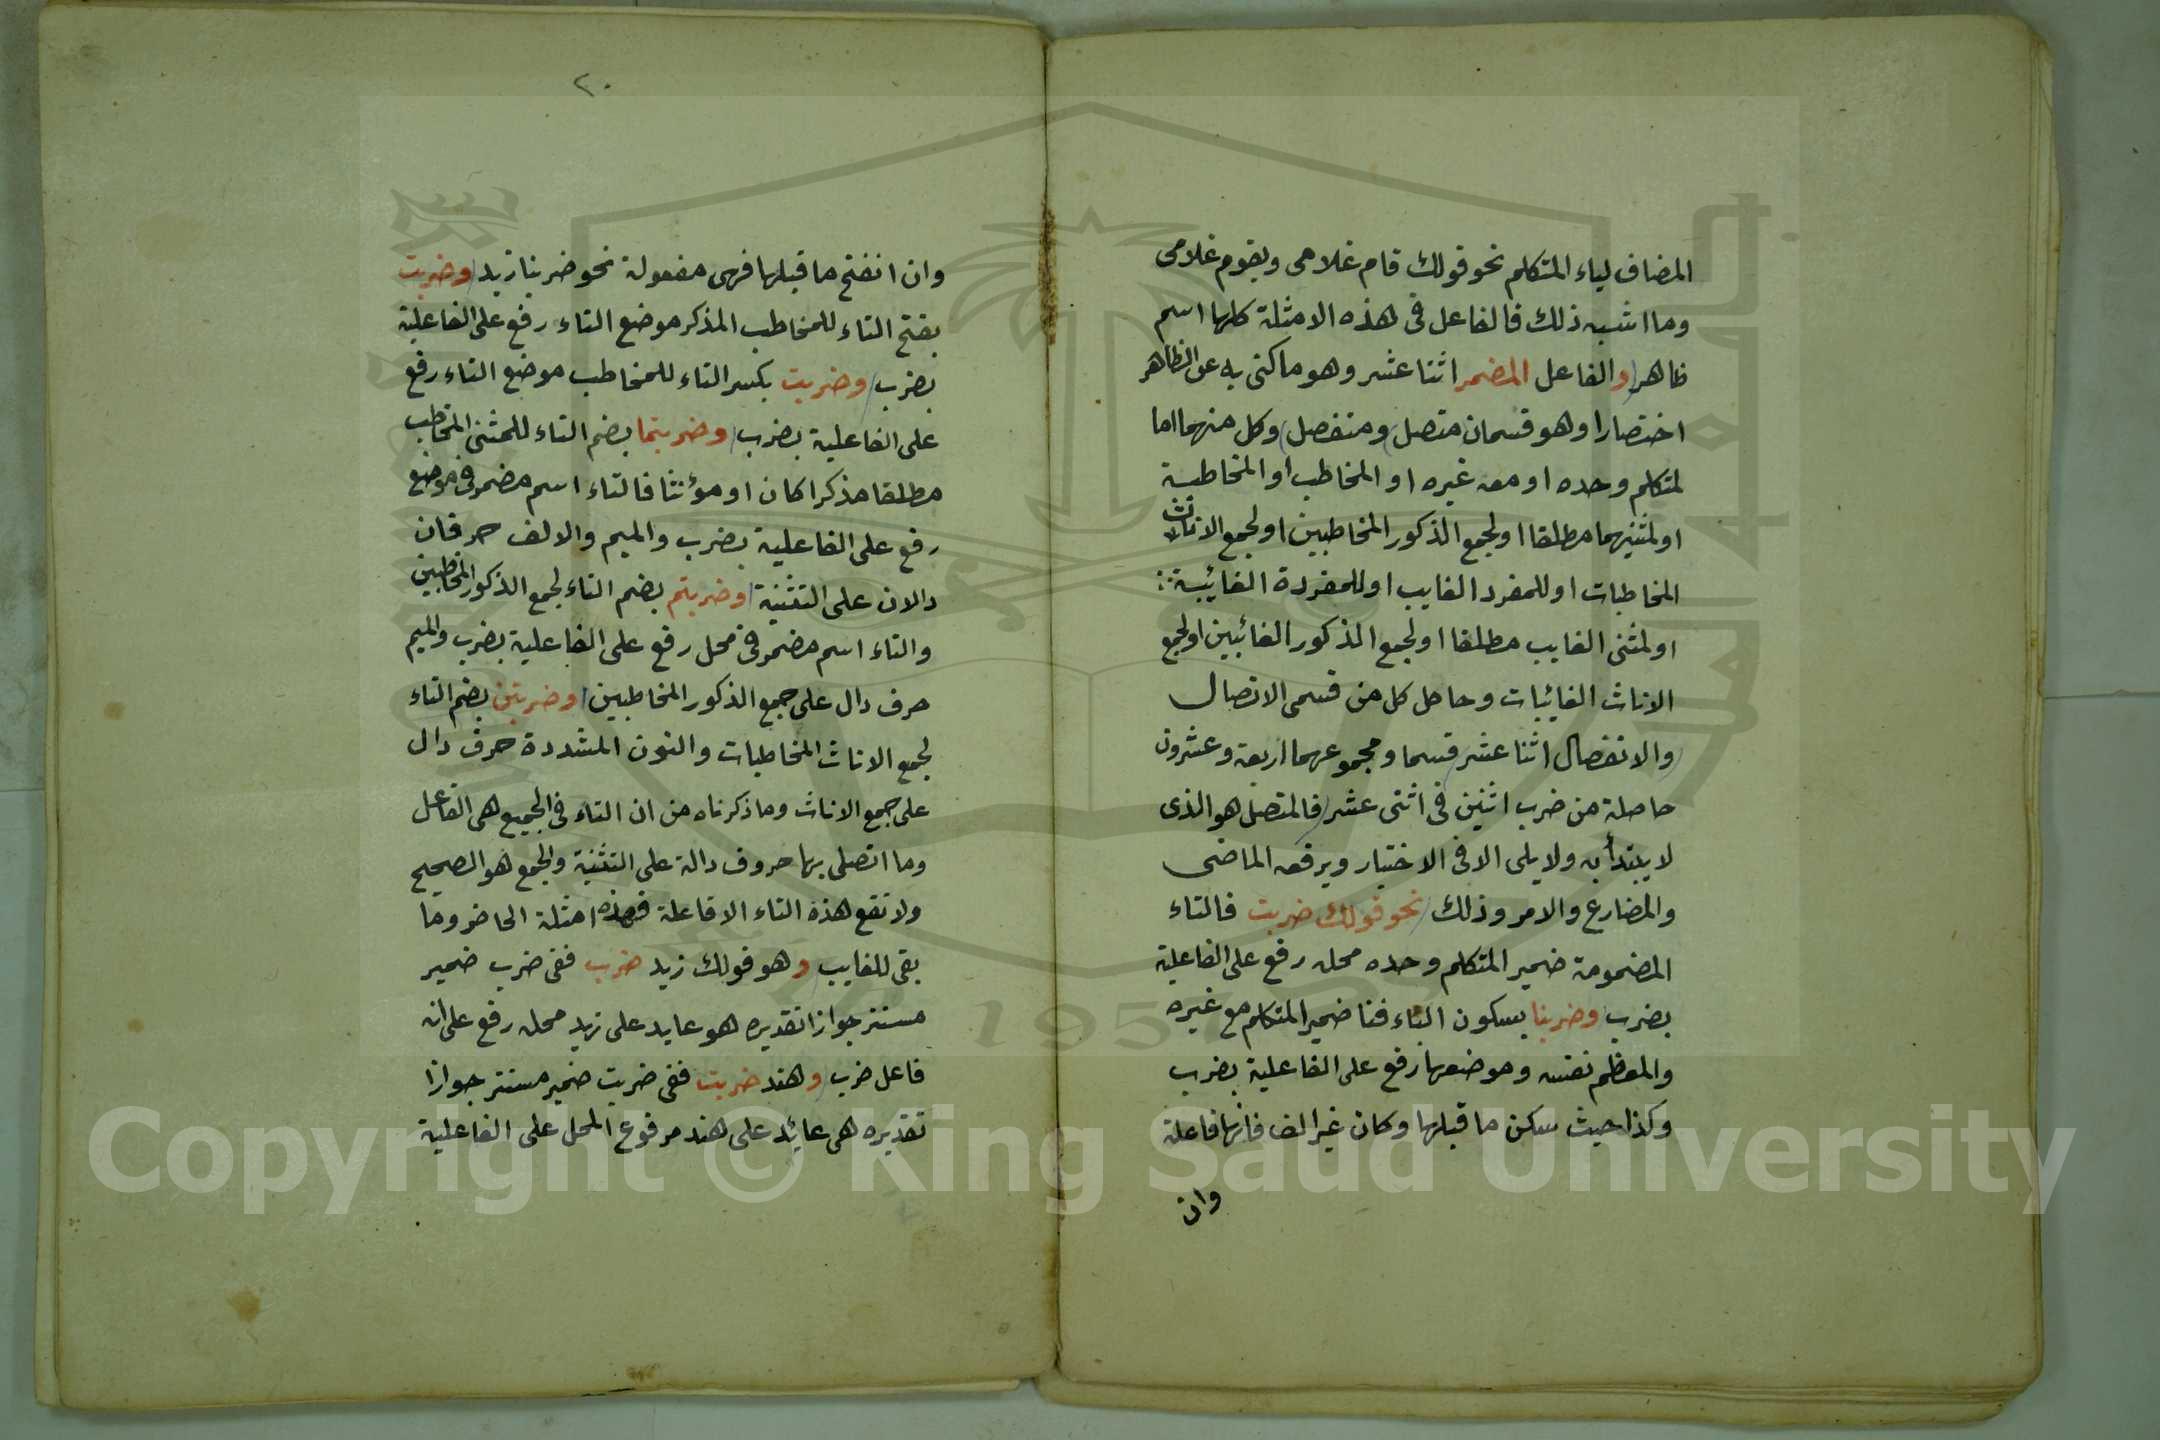 المضاف لياء المتكلم نحو قولك قام غلامى ويقوم غلامى
وما اشبه ذلك فالفاعل فى هذه الامثلة كلها اسم
ظاهر والفاعل المضمر اثنا عشر وهو ما كنى به عن الظاهر
اختصارا وهو قسمان متصل ومنفصل وكل منهما اما
لمتكلم وحده او معه غيره او المخاطب او المخاطبة
او لمثنيهما مطلقا او لجمع الذكور المخاطبين او لجمع الاناث
المخاطبات او للمفرد الغايب او للمفردة الغائبة
او لمثنى الغايب مطلقا او لجمع المذكور الغائبين او لجمع
الاناث الغائبات وحاصل كل من قسمى الاتصال
والانفصال اثنا عشر قسما ومجموعهما اربعة وعشرون
حاصلة من ضرب اثنين فى اثنى عشر فالمتصل هو الذى
لا يبتدأ به ولا يلى الا فى الاختيار ويرفعه الماضى
والمضارع والامر وذلك نحو قولك ضربت فالتاء
المضمومة ضمير المتكلم وحده محله رفع على الفاعلية
بضرب وضربنا بسكون الباء فنا ضمير المتكلم مع غيره
والمعظم نفسه وموضعها رفع على الفاعلية بضرب
وكذا حيث سكن ما قبلها وكان غير الف فانها فاعلة
وان
٢٠
وان انفتح ما قبلها فهى مفعولة نحو ضربنا زيد وضربت
بفتح التاء للمخاطب المذكر موضع التاء رفع على الفاعلية
بضرب وضربت بكسر التاء للمخاطب موضع التاء رفع
على الفاعلية بضرب وضربتما بضم التاء للمثنى المخاطب
مطلقا مذكرا كان او مؤنثا فالتاء اسم مضمر فى موضع
رفع على الفاعلية بضرب والميم والالف حرفان
دالان على التثنية وضربتم بضم التاء لجمع الذكور المخاطبين
والتاء اسم مضمر فى محل رفع على الفاعلية بضرب والميم
حرف دال على جمع الذكور المخاطبين وضربتن بضم التاء
لجمع الاناث المخاطبات والنون المشددة حرف دال
على جمع الاناث وما ذكرناه من ان التاء فى الجميع هى الفاعل
وما اتصل بها حروف دالة على التثنية والجمع هو الصحيح
ولا تقع هذه التاء الا فاعلة فهذه امثلة الحاضر وما
بقى للغايب وهو قولك زيد ضرب ففى ضرب ضمير
مستتر جوازا تقديره هو عايد على زيد محله رفع على انه
فاعل ضرب وهند ضربت ففى ضربت ضمير مستتر جوازا
تقديره هى عائد على هند مرفوع المحل على الفاعلية
Copyright © King Saud University
1957